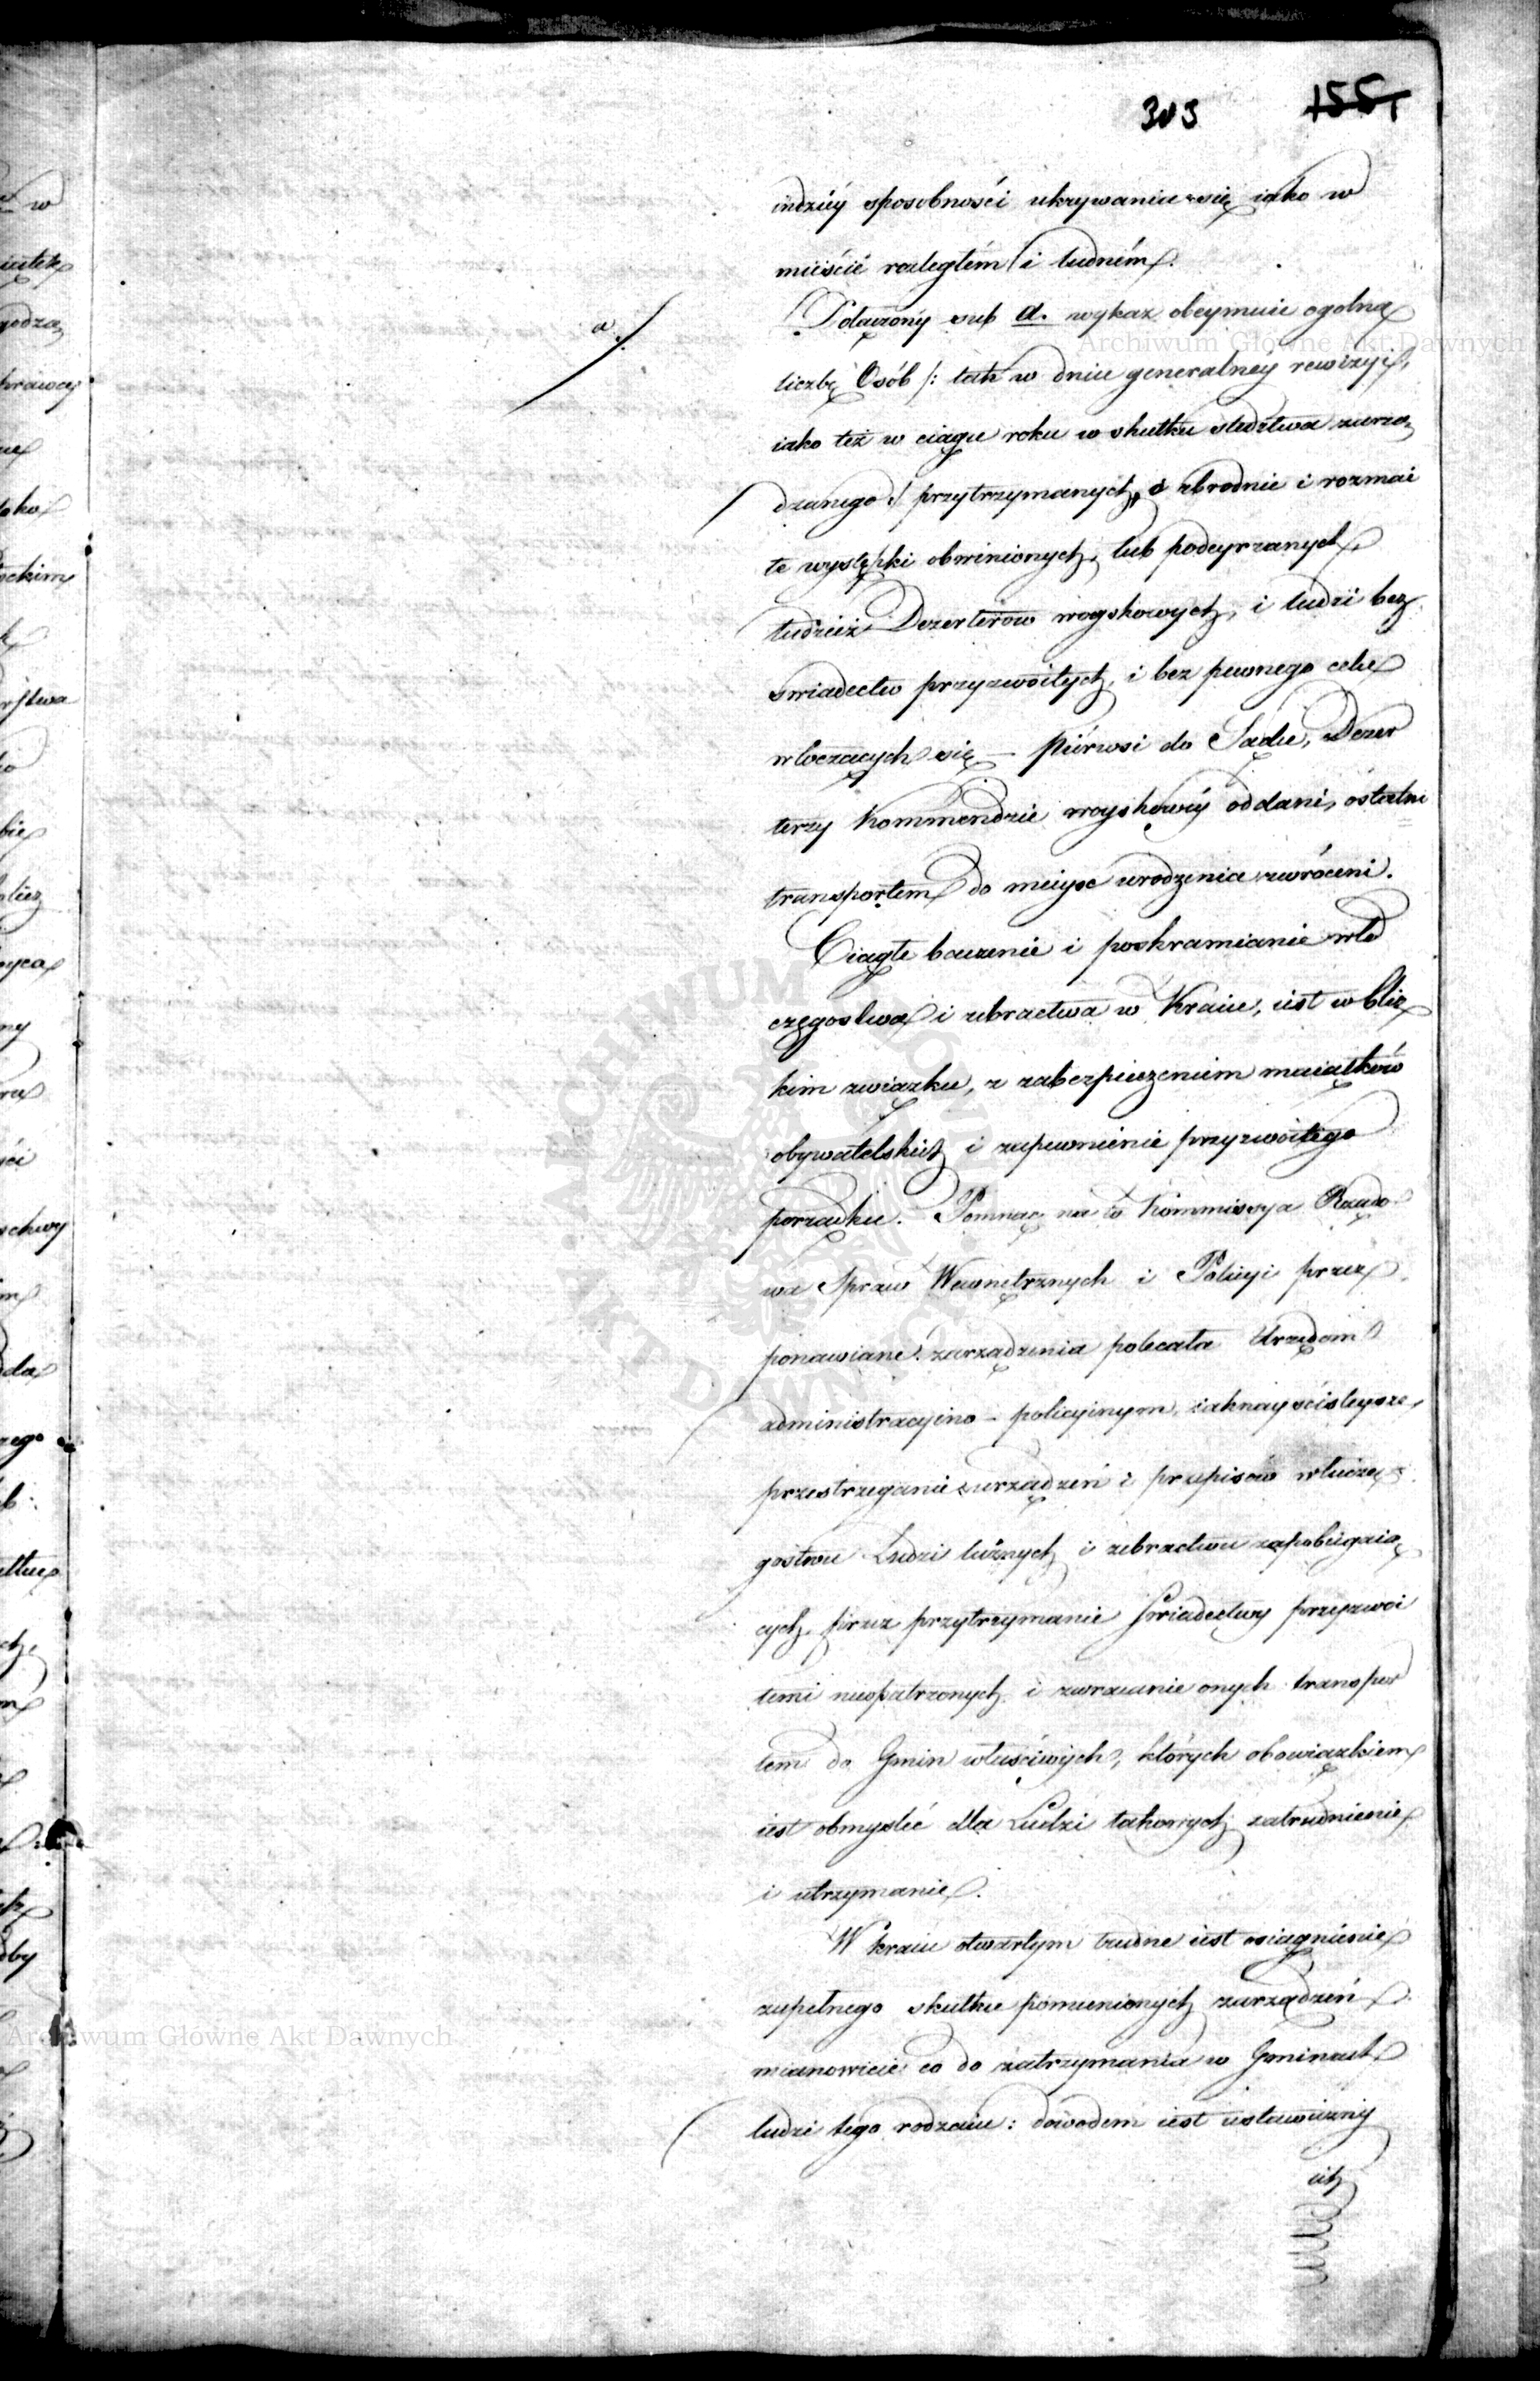 303 155
indziéy sposobności ukrywania się iako w
mieście rozległém i ludném.
a./.
Dołączony sub a. wykaz obeymuie ogolną
liczbę Osób /: tak w dniu generalnéy rewizyi,
iako też w ciągu roku w skutku śledztwa zarzą
dzanego :/ przytrzymanych, o zbrodnie i rozmai
te występki obwinionych, lub podeyrzanych,
tudzież Dezerterow woyskowych, i ludzi bez
swiadectw przyzwoitych, i bez pewnego celu
włoczących się – piérwsi do Sądu, Dezer
terzy Kommendzie woyskowéy oddani, ostatni
transportem do mieysc urodzenia zwróceni.
Ciągłe baczenie i poskramianie włó
częgostwa i żebractwa w Kraiu, iest w bliz
kim związku, z zabezpieczeniem maiątków
obywatelskich i zapewnienie przyzwoitego
porządku. Pomnąc na to Kommissya Rządo
wa Spraw Wewnętrznych i Policyi przez
ponawiane zarządzenia polecała Urzędom
administracyino - policyinym, iaknayściśleysze
przestrzeganie urządzeń i przepisów włoczę
gostwu Ludzi luźnych i żebractwu zapobiegaią
cych, przez przytrzymanie Świadectwy przyzwoi
temi nieopatrzonych i zwracanie onych transpor
tem do Gmin właściwych, których obowiązkiem
iest obmyślić dla Ludzi takowych zatrudnienie
i utrzymanie.
W kraiu otwartym trudne iest osiągnienie
zupełnego skutku pomienionych zarządzeń
mianowicie co do zatrzymania w Gminach
ludzi tego rodzaiu: dowodem iest ustawiczny
ich
Archiwum Główne Akt Dawnych
Archiwum Główne Akt Dawnych
ARCHIWUM GŁÓWNE AKT DAWNYCH